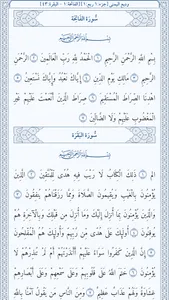 سُورَةُ الفَاتِحَةِ
بِسْمِ اللَّهِ الرَّحْمَٰنِ الرَّحِيمِ ١ الْحَمْدُ لِلَّهِ رَبِّ الْعَالَمِينَ ٢ الرَّحْمَٰنِ
الرَّحِيمِ ٣ مَالِكِ يَوْمِ الدِّينِ ٤ إِيَّاكَ نَعْبُدُ وَإِيَّاكَ نَسْتَعِينُ ٥
اهْدِنَا الصِّرَاطَ الْمُسْتَقِيمَ ٦ صِرَاطَ الَّذِينَ أَنْعَمْتَ عَلَيْهِمْ غَيْرِ
الْمَغْضُوبِ عَلَيْهِمْ وَلَا الضَّالِّينَ ٧
سُورَةُ البَقَرَةِ
الم ١ ذَٰلِكَ الْكِتَابُ لَا رَيْبَ فِيهِ هُدًى لِلْمُتَّقِينَ ٢ الَّذِينَ
يُؤْمِنُونَ بِالْغَيْبِ وَيُقِيمُونَ الصَّلَاةَ وَمِمَّا رَزَقْنَاهُمْ يُنْفِقُونَ ٣
وَالَّذِينَ يُؤْمِنُونَ بِمَا أُنْزِلَ إِلَيْكَ وَمَا أُنْزِلَ مِنْ قَبْلِكَ وَبِالْآخِرَةِ هُمْ
يُوقِنُونَ ٤ أُولَٰئِكَ عَلَىٰ هُدًى مِنْ رَبِّهِمْ وَأُولَٰئِكَ هُمُ الْمُفْلِحُونَ
٥ إِنَّ الَّذِينَ كَفَرُوا سَوَاءٌ عَلَيْهِمْ أَأَنْذَرْتَهُمْ أَمْ لَمْ تُنْذِرْهُمْ لَا
يُؤْمِنُونَ ٦ خَتَمَ اللَّهُ عَلَىٰ قُلُوبِهِمْ وَعَلَىٰ سَمْعِهِمْ وَعَلَىٰ أَبْصَارِهِمْ
غِشَاوَةٌ وَلَهُمْ عَذَابٌ عَظِيمٌ ٧ وَمِنَ النَّاسِ مَنْ يَقُولُ آمَنَّا بِاللَّهِ